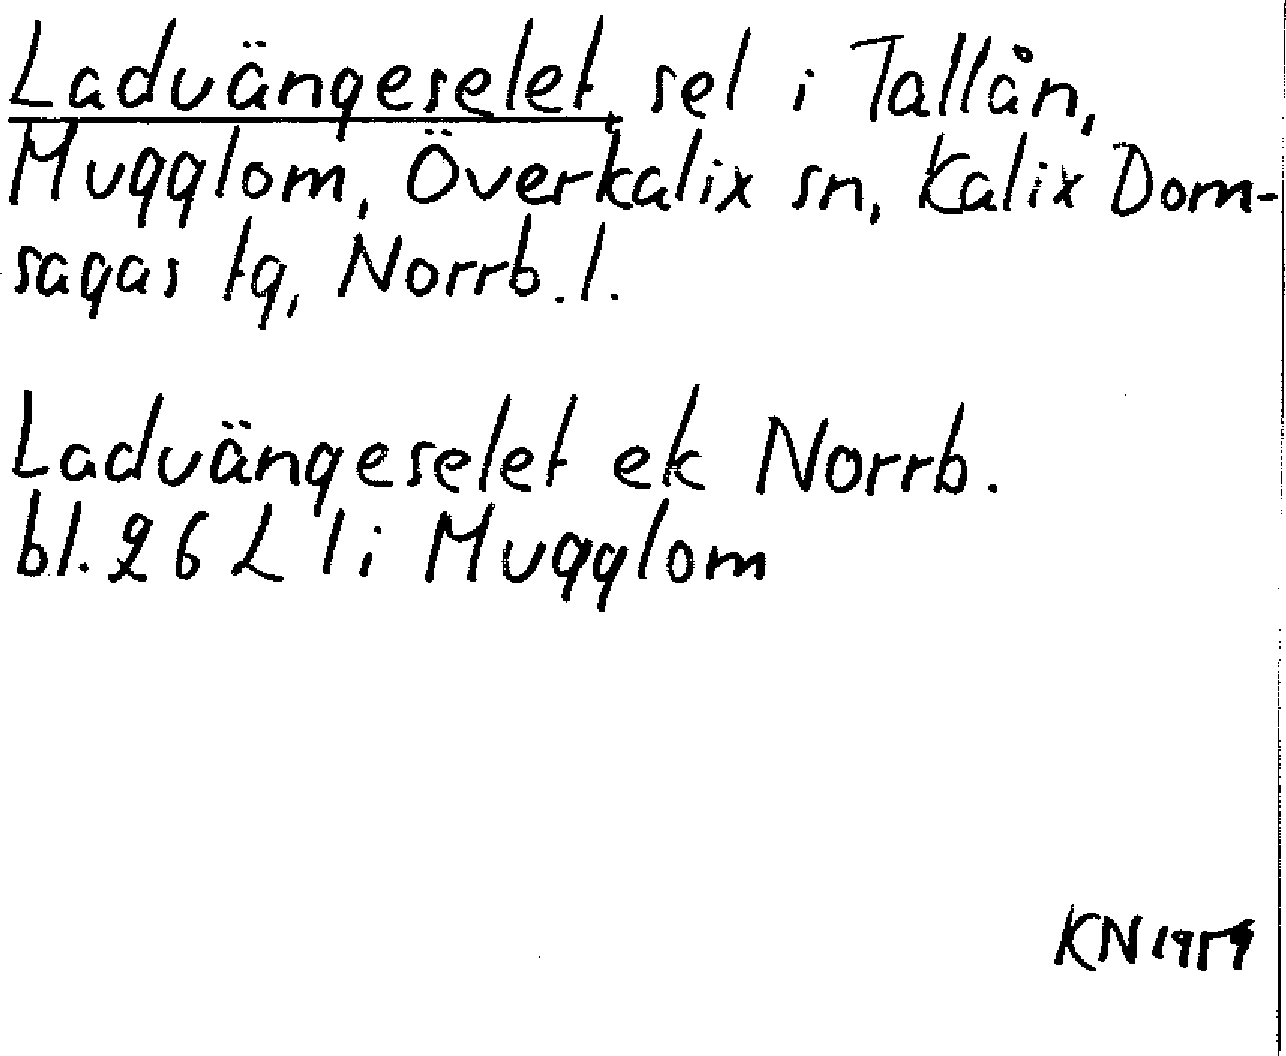 Laduängeselet, sel i Tallån,
Mugglom, Överkalix sn, Kalix Dom-
sagas tg, Norrb. l.
Laduängeselet ek Norrb.
bl. 26 L l i Mugglom
KN 1959